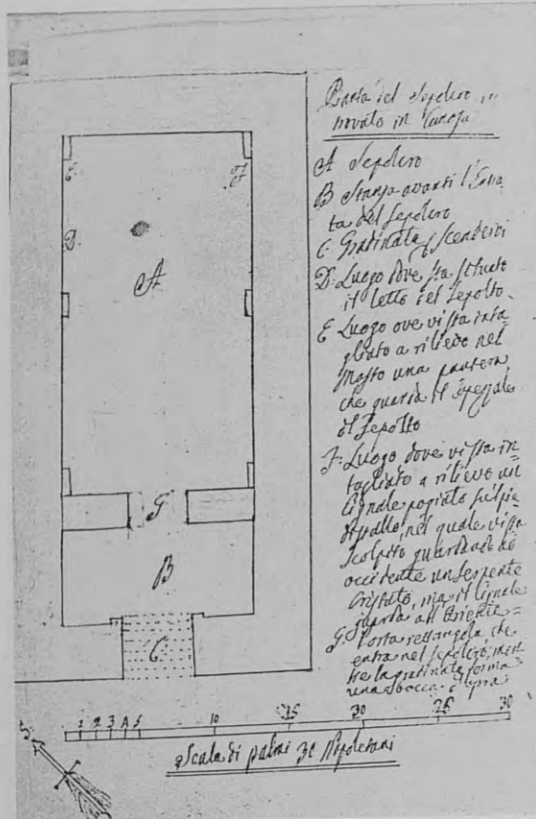 Pianta del Sepolcro in
novato in Canosa
A Sepolcro
B Stanza avanti l'Entra
ta del Sepolcro
C Gradinata Scendervi
D: Luogo dove sta situato
il letto del Sepolto
E Luogo ove vi sta inta
gliato a rilievo nel
Masso una pantera,
che guarda il
del Sepolto
F: Luogo dove vi sta in
tagliato a rilievo un
Cignale pogiato sul pie
distallo, nel quale vi sta
Scolpito guardado ad
occidente un serpente
Cristato, ma il Cignale
guarda all'Oriente =
G: Porta rettangola, che
entra nel Sepolcro, men
tre la gradinata forma
una bocca d'opra
E
F
D
A
G
B
C
1 2 3 4 5 10 15 20 25 30
Scala di palmi 30 Napoletani
S